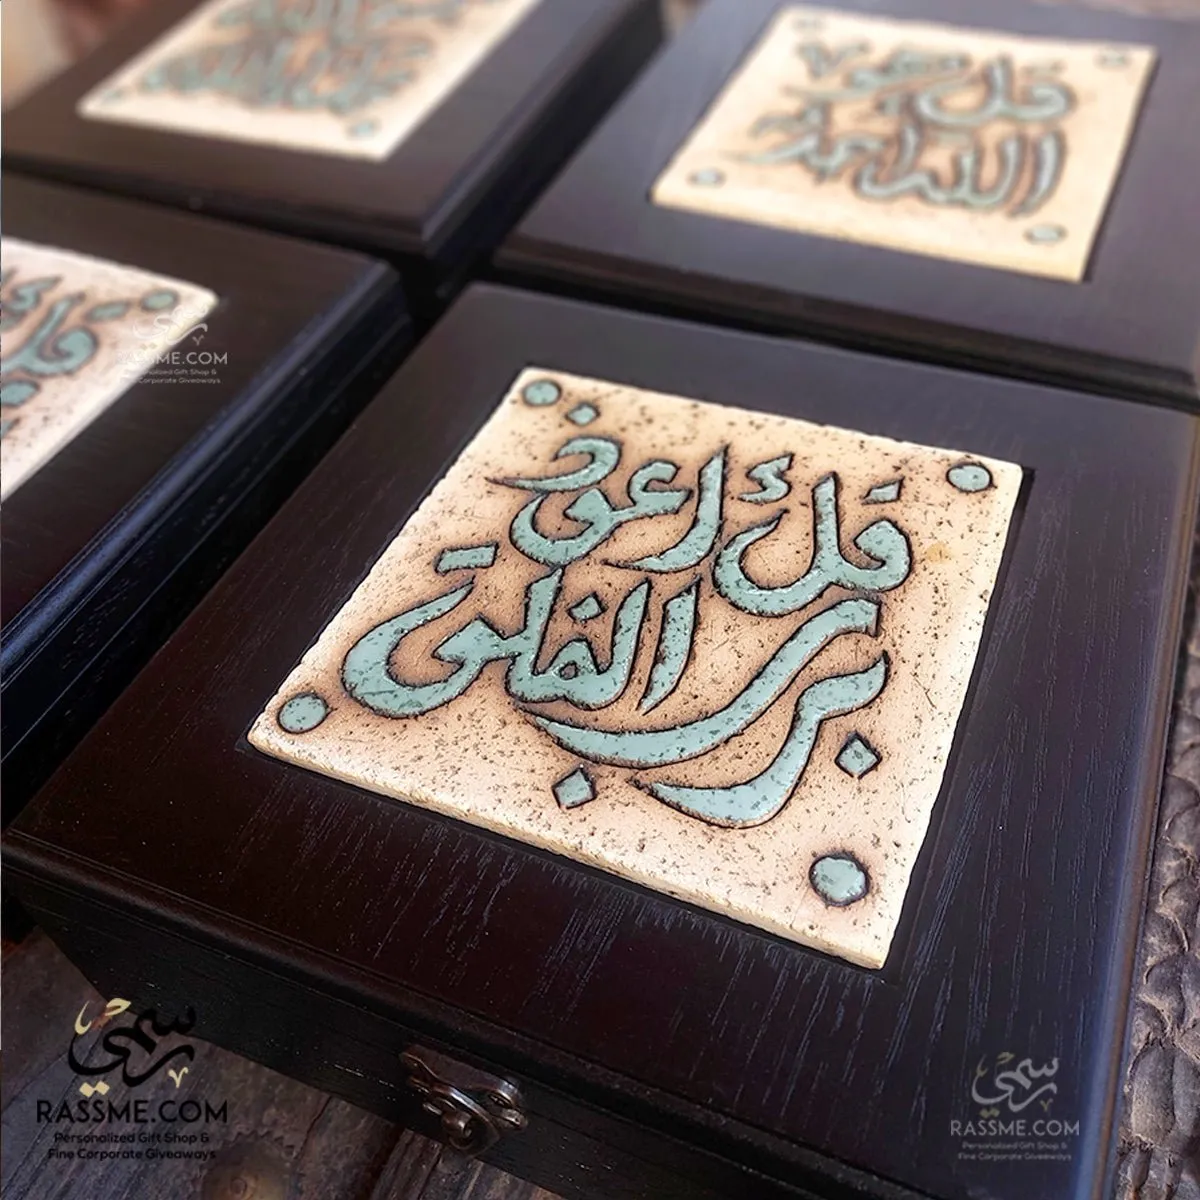 قل هو
الله احد
قل أعوذ
برب الفلق
RASSME.COM
Personalized Gift Shop &
Fine Corporate Giveaways
رسمي
RASSME.COM
Personalized Gift Shop &
Fine Corporate Giveaways
رسمي
RASSME.COM
Personalized Gift Shop &
Fine Corporate Giveaways